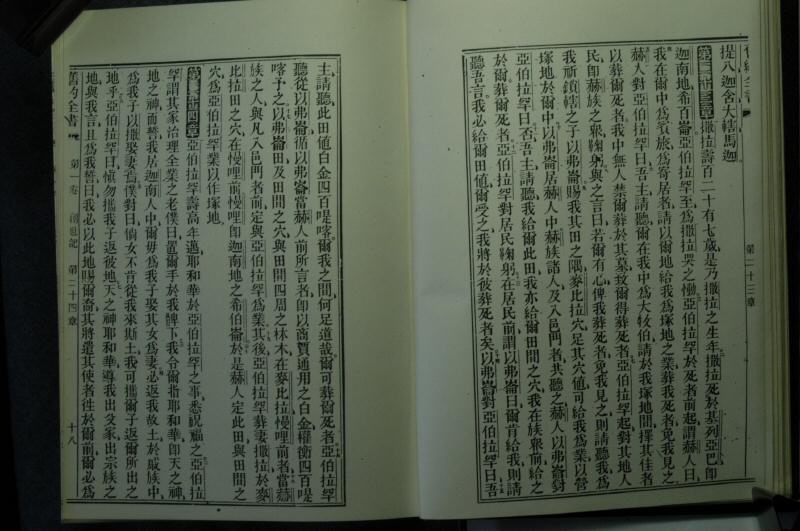 舊約全書
第二十三章
提八迦含大轄馬迦
第二十三章 撒拉壽百二十有七歲是乃撒拉之生年撒拉死於基列亞巴卽
迦南地希百崙亞伯拉罕至爲撒拉哭之慟亞伯拉罕於死者前起謂赫人曰
我在爾中爲賓旅爲寄居者請以爾地給我爲塚地之業葬我死者免我見之
赫人對亞伯拉罕曰吾主請聽爾在我中爲大牧伯請於我塚地間擇其佳者
以葬爾死者我中無人禁爾葬於其墓致爾得葬死者亞伯拉罕起對其地人
民卽赫族之衆鞠躬與之言曰若爾有心俾我葬死者免我見之則請聽我爲
我祈鎖轄之子以弗崙賜我其田之隅麥比拉穴足其穴値可給我爲業以營
塚地於爾中以弗崙居赫人中赫族諸人及入邑門者共聽之赫人以弗崙對
亞伯拉罕曰否吾主請聽我我給爾此田我亦給爾田間之穴我在族衆前給之
於爾葬爾死者亞伯拉罕對居民鞠躬在居民前謂以弗崙曰爾肯給我則請
聽吾言我必給爾田値爾受之我將於彼葬死者矣以弗崙對亞伯拉罕曰吾
主請聽此田値白金四百嘅喀爾我之間何足道哉爾可葬爾死者亞伯拉罕
聽從以弗崙循以弗崙當赫人前所言者卽以商賈通用之白金權衡四百嘅
喀予之以弗崙田及田間之穴與田間四周之林木在麥比拉慢哩前者當赫
族之人與凡入邑門者前定與亞伯拉罕爲業其後亞伯拉罕葬妻撒拉於麥
比拉田之穴在慢哩前慢哩卽迦南地之希伯崙於是赫人定此田與田間之
穴爲亞伯拉罕業以作塚地
第二十四章 亞伯拉罕壽高年邁耶和華於亞伯拉罕之事悉祝福之亞伯拉
罕謂其家治理全業之老僕曰置爾手於我髀下我令爾指耶和華卽天之神
地之神而誓我居迦南人中爾毋爲我子娶其女爲妻必返我故土於戚族中
爲我子以撒娶妻焉僕對曰倘女不肯從我來斯土我可攜爾子返爾所出之
地乎亞伯拉罕曰愼勿攜我子返彼地天之神耶和華導我出父家出宗族之
地與我言且爲我誓曰我必以此地賜爾裔其將遣其使者往於爾前爾必爲
舊約全書 第一卷 創世記 第二十四章 十八